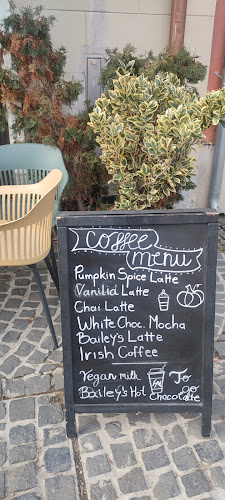 Coffee
menu
Pumpkin Spice Latte
Vanilia Latte
Chai Latte
White Choc. Mocha
Bailey's Latte
Irish Coffee
Vegan milk To
Go
Bailey's Hot Chocolatte